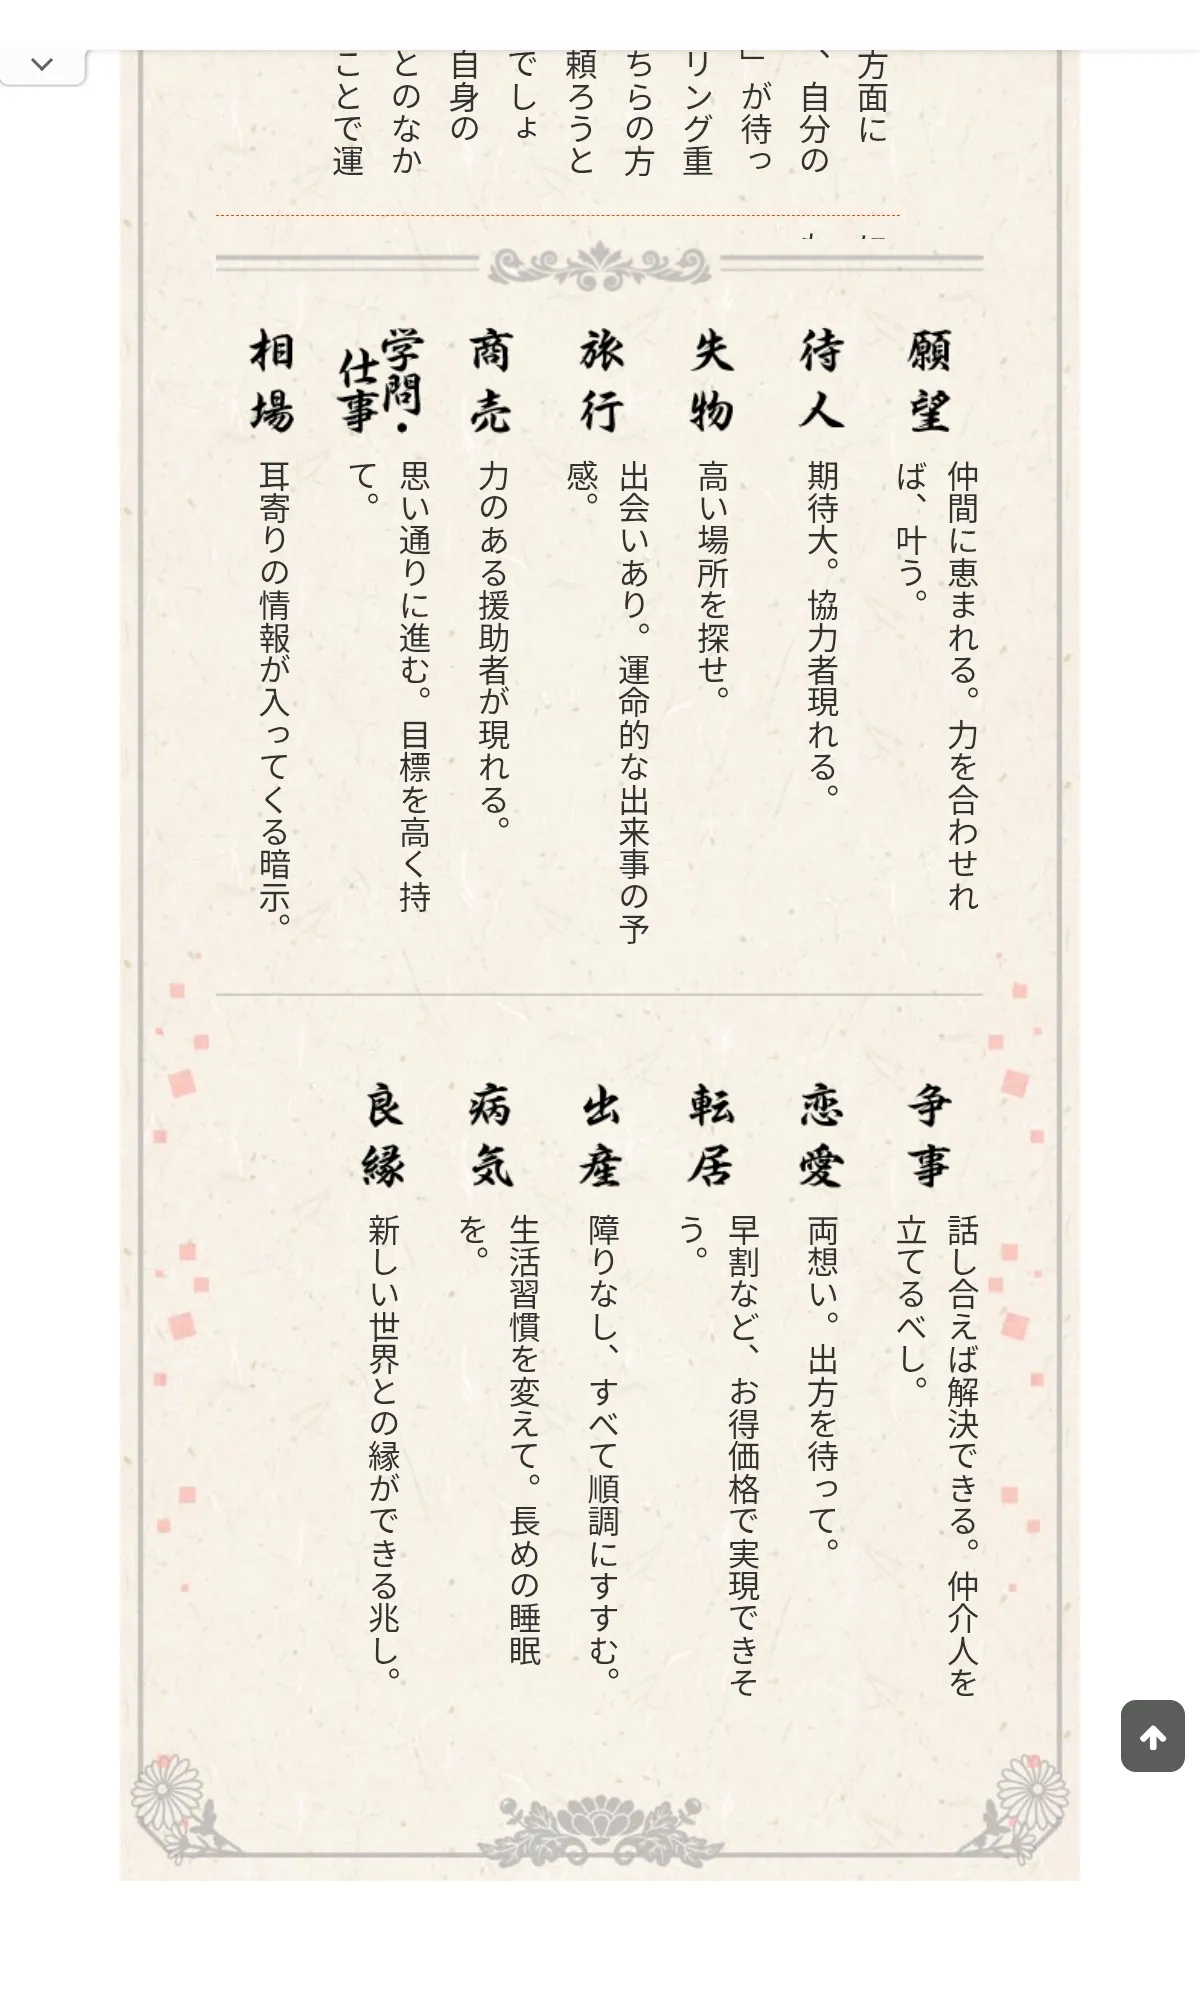 方面に
、自分の
」が待っ
リング重
ちらの方
頼ろうと
でしょ
自身の
とのなか
ことで運
願望
仲間に恵まれる。力を合わせれ
ば、叶う。
待人
期待大。協力者現れる。
失物
高い場所を探せ。
旅行
出会いあり。運命的な出来事の予
感。
商売
力のある援助者が現れる。
学問・
仕事
思い通りに進む。目標を高く持
て。
相場
耳寄りの情報が入ってくる暗示。
争事
話し合えば解決できる。仲介人を
立てるべし。
恋愛
両想い。出方を待って。
転居
早割など、お得価格で実現できそ
う。
出産
障りなし、すべて順調にすすむ。
病気
生活習慣を変えて。長めの睡眠
を。
良縁
新しい世界との縁ができる兆し。